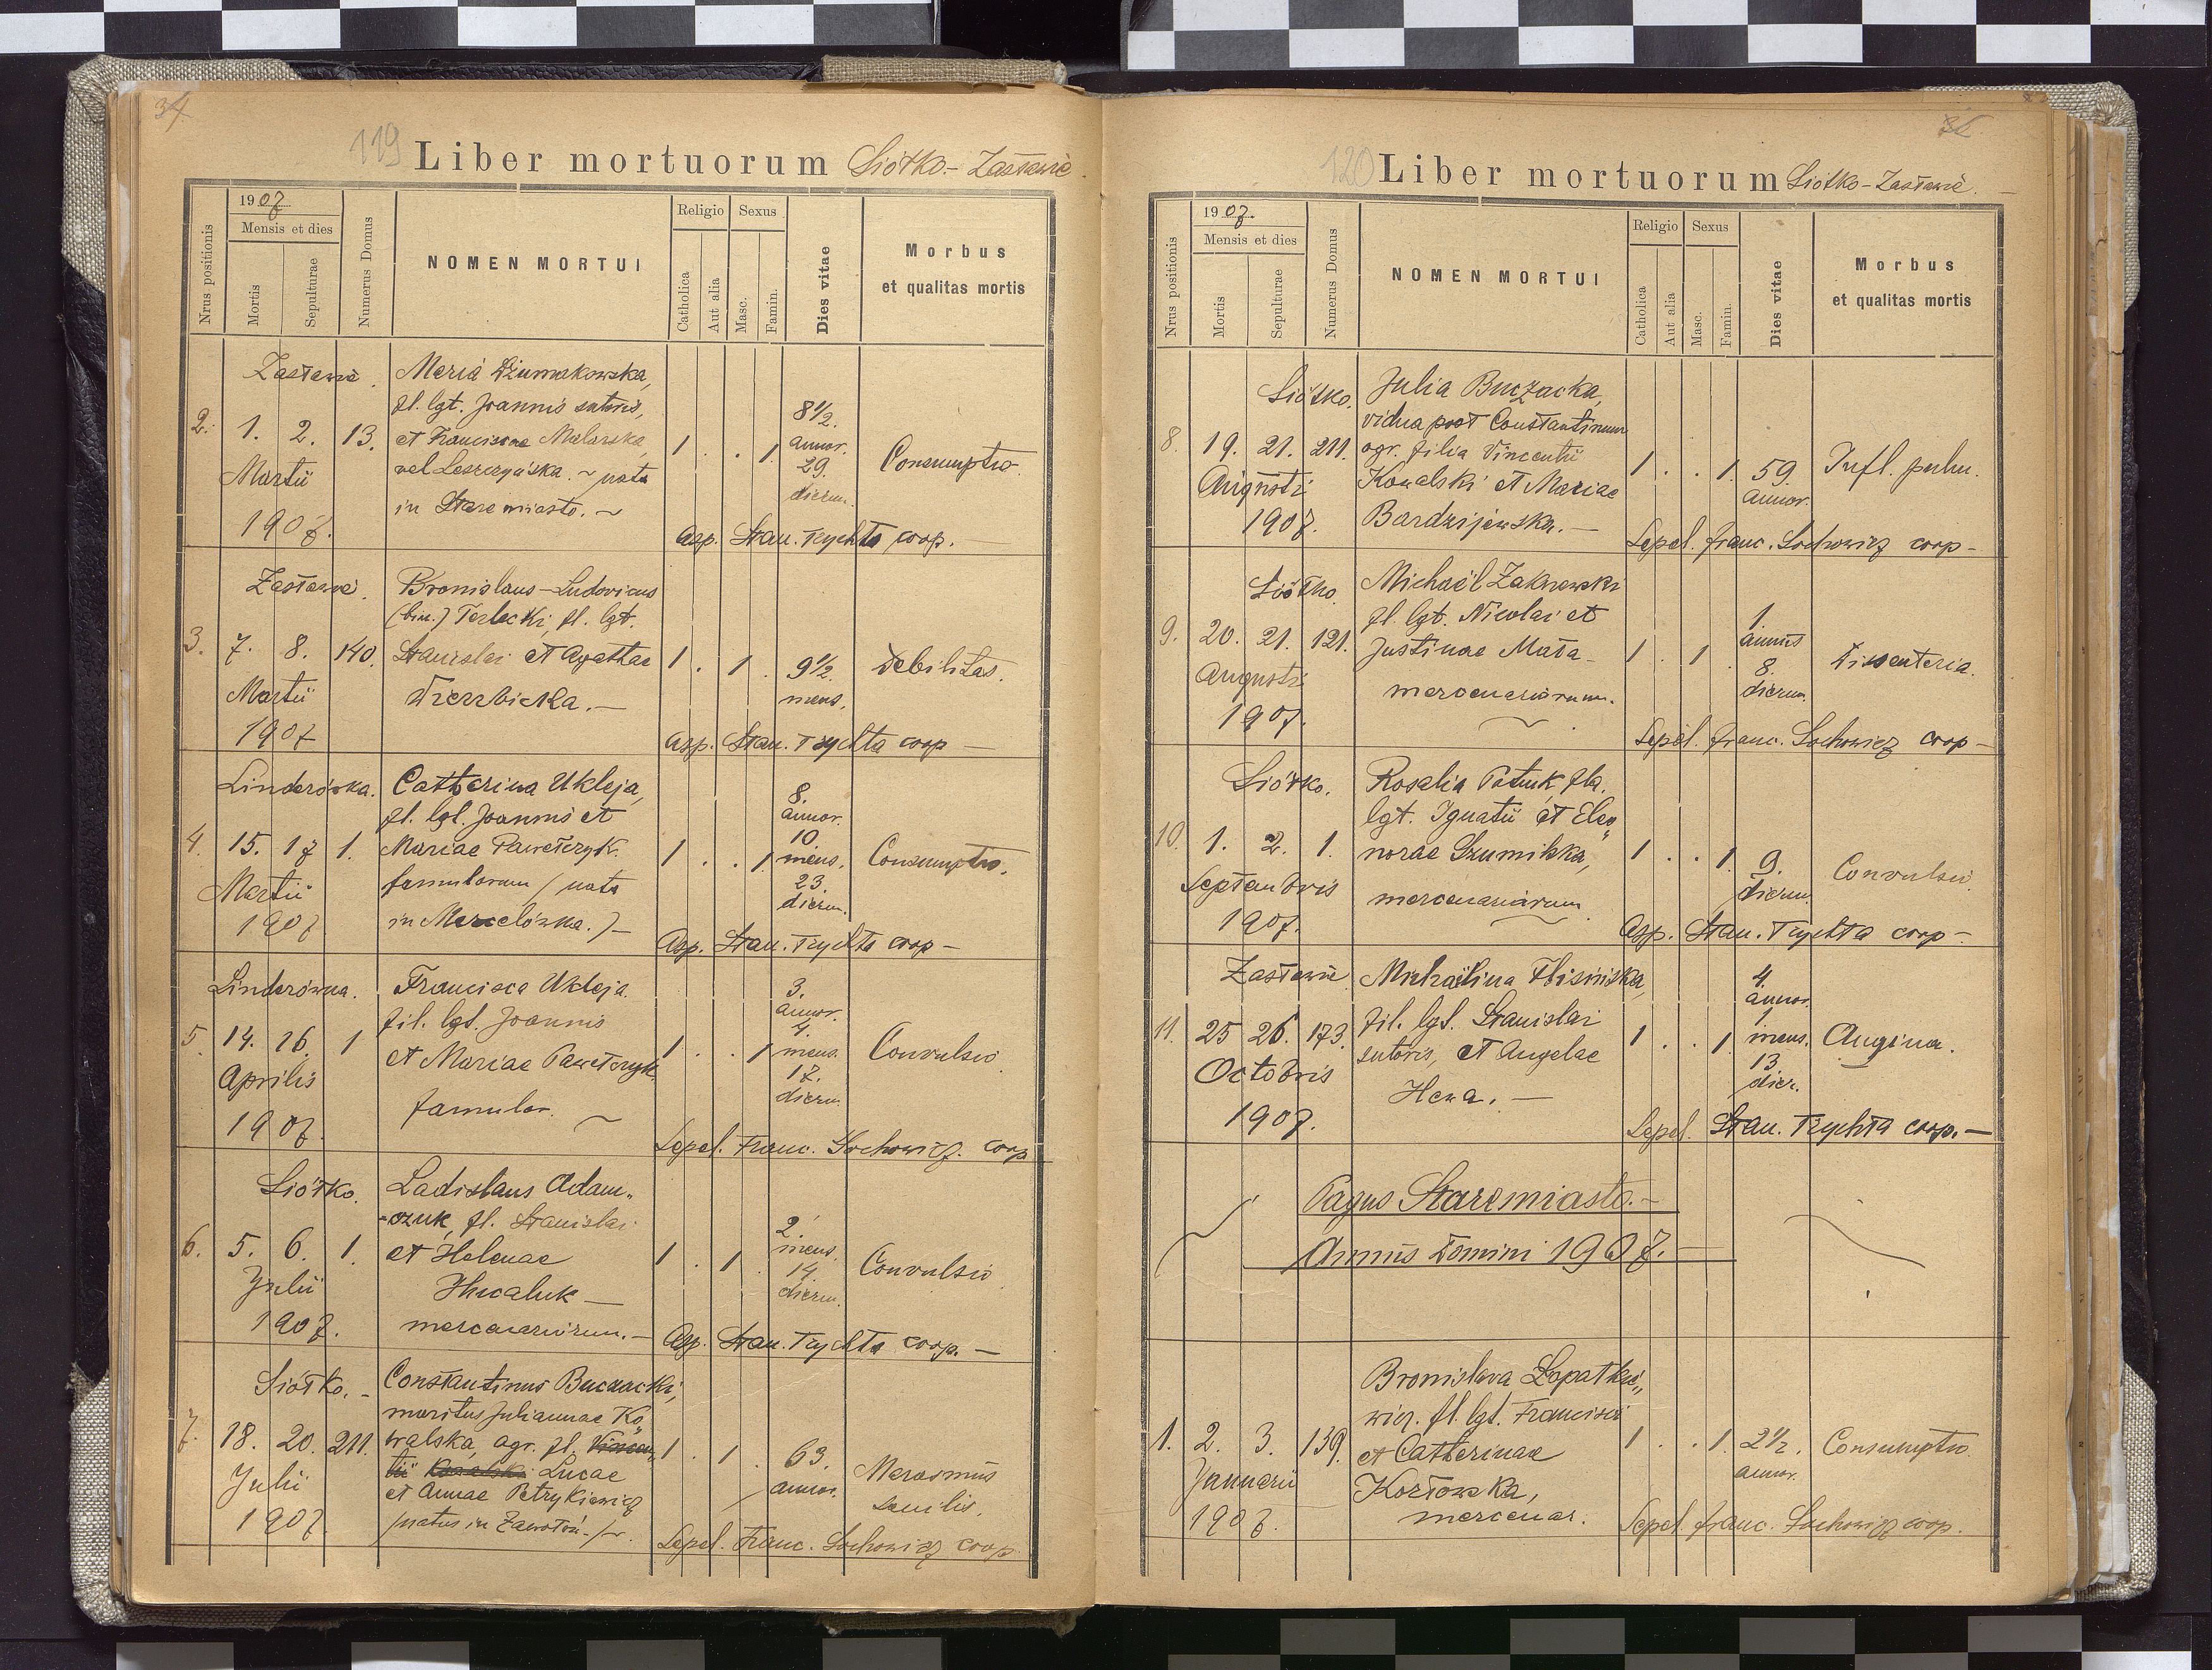 34
119 Liber mortuorum Siółko - Zastawie
Nrus positionis
1907
Mensis et dies
Mortis
Sepulturae
Numerus Domus
NOMEN MORTUI
Religio
Catholica
Aut alia
Sexus
Masc.
Famin.
Dies vitae
Morbus
et qualitas mortis
Zastawie.
2. 1. 2. 13.
Martii
1907.
Maria Dżumakowska,
fl. lgt. Joannis sutoris,
et Franciscae Malarska
vel Leszczyńska. ~ nata
in Staremiasto. ~
1 . . 1.
8 1/2.
annor.
29.
dierum.
Consumptio.
Asp. Stan. Trychta coop. —
Zastawie.
3. 7. 8. 140.
Martii
1907
Bronislaus - Ludovicus
(bin.) Terlecki, fl. lgt.
Stanislai et Agathae
Wierzbicka. —
1 . 1 .
9 1/2.
mens.
Debilitas.
Asp. Stan. Trychta coop —
Linderówka.
4. 15. 17 1.
Martii
1907
Catherina Ukleja,
fl. lgt. Joannis et
Mariae Pawełczyk.
famulorum / nata
in Marcelówka. / —
1 . . 1
8.
annor.
10.
mens.
23.
dierum.
Consumptio.
Asp. Stan. Trychta coop —
Linderówka.
5. 14. 16. 1
Aprilis
1907.
Francisca Ukleja.
fil. lgt. Joannis
et Mariae Pawełczyk
famulor. ~
1 . . 1
3.
annor.
4.
mens.
17.
dierum.
Convulsio.
Sepel. Franc. Sochowicz. coop
Siółko.
6. 5. 6. 1.
Julii
1907.
Ladislaus Adam„
-czuk, fl. Stanislai
et Helenae
mercenariorum. —
1 . 1 .
2.
mens.
14.
dierum.
Convulsio
Asp. Stan. Trychta coop. —
Siółko. -
7. 18. 20. 211.
Julii
1907.
Constantinus Buczacki,
maritus Juliannae Ko„
walska, agr. fl. Vincen„
tii Kowalski Lucae
et Annae Petrykiewicz
/natus in Zawołoń. / ~
1 . 1 .
63.
annor.
Marasmus
senilis.
Sepel. Franc. Sochowicz coop.
120 Liber mortuorum Siółko - Zastawie. —
Nrus positionis
1907.
Mensis et dies
Mortis
Sepulturae
Numerus Domus
NOMEN MORTUI
Religio
Catholica
Aut alia
Sexus
Masc.
Famin.
Dies vitae
Morbus
et qualitas mortis
Siółko.
8. 19. 21. 211.
Augusti
1907.
Julia Buczacka,
vidua post Constantinum
agr. filia Vincentii
Kowalski et Mariae
Bardzijewska. —
1 . . 1.
59.
annor.
Infl. pulm.
Sepel. franc. Sochowicz coop —
Siółko
9. 20. 21. 121.
Augusti
1907.
Michaël Zakrzewski
fl. lgt. Nicolai et
Justinae Mała -
mercenariorum.
1 . 1 .
1.
annus
8.
dierum
Dissenteria.
Sepel. franc. Sochowicz coop —
Siółko.
10. 1. 2. 1.
Septembris
1907.
Rosalia Patuk fla.
lgt. Ignatii et Eleo„
norae Szumilska,
mercenariorum
1 . . 1
9.
dierum.
Convulsio.
Asp. Stan. Trychta coop —
Zastawie
11. 25 26. 173.
Octobris
1907.
Michaëlina
fil. lgt. Stanislai
sutoris, et Angelae
Hewa. —
1 . . 1.
4.
annor.
1
mens.
13.
dier.
Angina.
Sepel. Stan. Trychta coop. —
Pagus Staremiasto. —
Annus Domini 1907. —
1. 2. 3. 139.
Januarii
1907.
Bronislava Łopatkie„
wicz. fl. lgt. Francisci
et Catherinae
Kozłowska,
mercenar.
1 . . 1.
2 1/2.
annor.
Consumptio
Sepel. franc. Sochowicz coop.